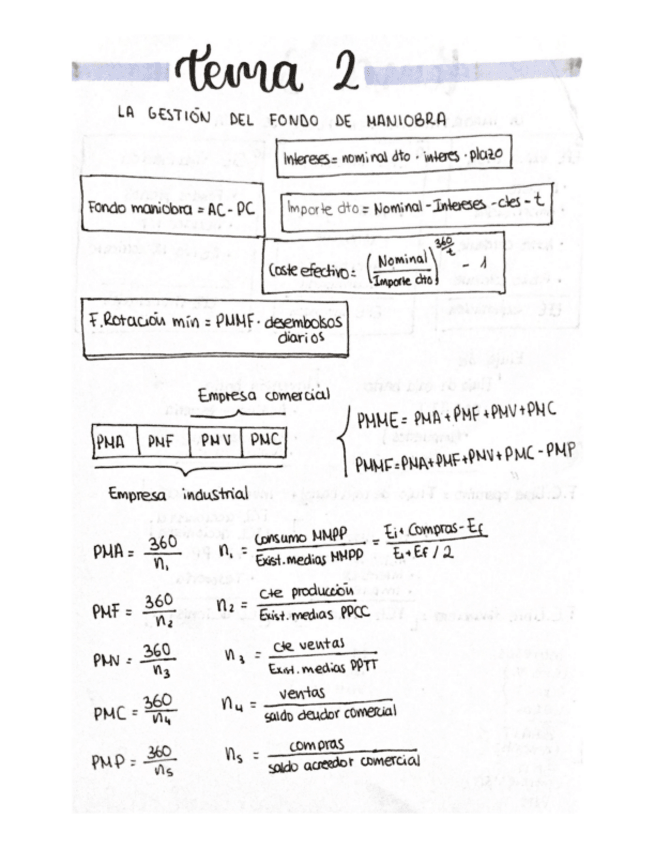 Tema 2
LA GESTIÓN DEL FONDO DE MANIOBRA
Intereses = nominal dto · interes · plazo
Fondo maniobra = AC - PC
Importe dto = Nominal - Intereses - ctes - t
Coste efectivo = (Nominal / Importe dto)^(360/t) - 1
F. Rotación min = PMMF · desembolsos
diarios
Empresa comercial
PMA | PMF | PMV | PMC
Empresa industrial
PMME = PMA + PMF + PMV + PMC
PMMF = PMA + PMF + PMV + PMC - PMP
PMA = 360 / n₁ n₁ = Consumo MMPP / Exist. medias MMPP = Ei + Compras - Ef / Ei + Ef / 2
PMF = 360 / n₂ n₂ = cte producción / Exist. medias PPCC
PMV = 360 / n₃ n₃ = cte ventas / Exist. medias PPTT
PMC = 360 / n₄ n₄ = ventas / saldo deudor comercial
PMP = 360 / n₅ n₅ = compras / saldo acreedor comercial